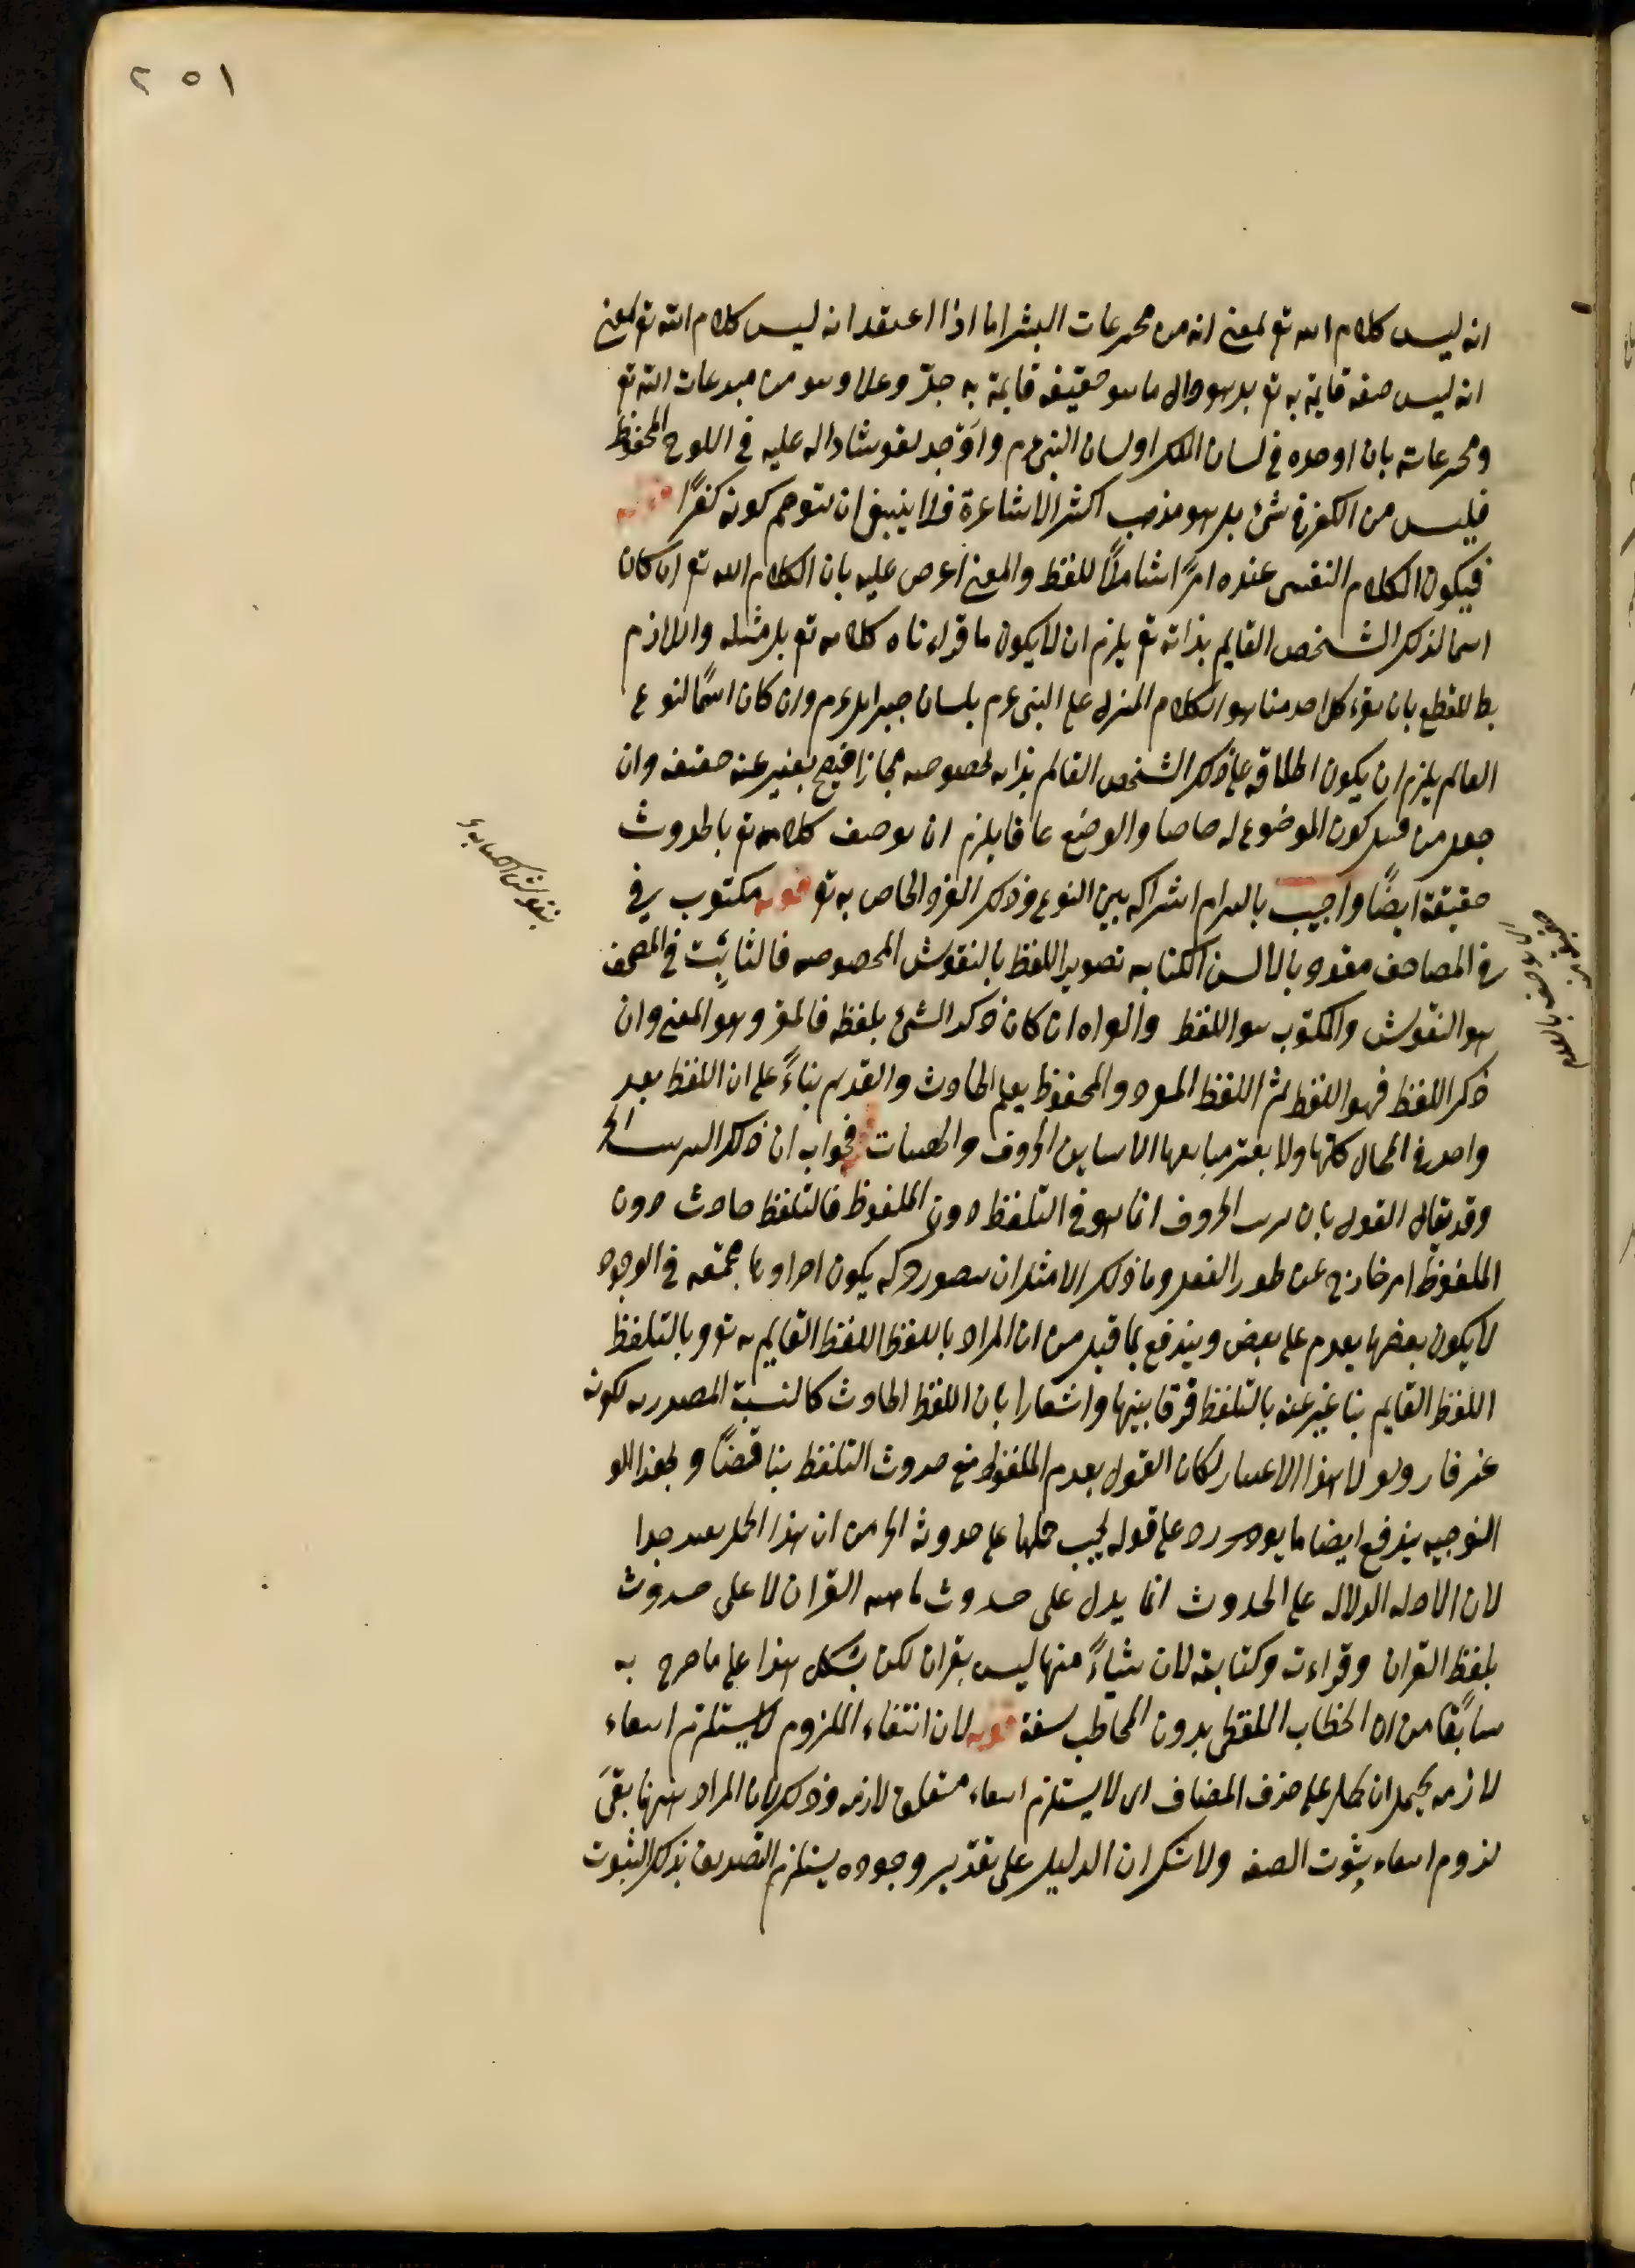 ٢٥١
انه ليس كلام الله تع بمعنى انه من مخترعات البشر اما اذا اعتقد انه ليس كلام الله تع بمعنى
انه ليس صفة قايمة به تع بل هو دال ما هو حقيقة قايمة به جلّ وعلا وهو من مبدعات الله تع
ومخترعاته بان اوجده في لسان الملك او لسان النبي عم واَوْجد نقوشا دالة عليه في اللوح المحفوظ
فليس من الكفر في شئ بل هو مذهب اكثر الاشاعرة فلا ينبغي ان يتوهم كونه كفرًا قوله
فيكون الكلام النفسى عنده امرًا شاملًا للفظ والمعنى اعترض عليه بان الكلام الله تع ان كان
اسما لذلك الشخص القايم بذاته تع يلزم ان لا يكون ما قراءناه كلامه تع بل مثله واللازم
بط للقطع بان ما يقرؤه كل احد منا هو الكلام المنزل على النبي عم بلسان جبرايل عم وان كان اسمًا لنوع
القايم يلزم ان يكون اطلاقه على ذلك الشخص القايم بذاته لخصوصه مجازا فيصح نفيه عنه حقيقة وان
جعل من قبيل كون الموضوع له خاصا والوضع عاما فيلزم ان يوصف كلامه تع بالحدوث
حقيقة ايضًا واجيب بالتزام اشتراكه بين النوع وذلك الفرد الخاص به تع قوله مكتوب في
في المصاحف مقروء بالالسن الكتابة تصوير اللفظ بالنقوش المخصوصه فالثابت في المصحف
هو النقوش والمكتوب هو اللفظ والقراءة ان كان ذكر الشئ بلفظه فالمقروء هو المعنى وان
ذكر اللفظ فهو اللفظ ثم اللفظ المقروء والمحفوظ يعم الحادث والقديم بناءً على ان اللفظ يعد
واحد في المحال كلها ولا يعتبر مباينها الا بتباين الحروف والهيئات قوله فجوابه ان ذلك الترتيب الخ
وقد يقال القول بان ترتب الحروف انما هو في التلفظ دون الملفوظ فالتلفظ حادث دون
الملفوظ امر خارج عن طور العقل وما ذلك الا مثل ان يتصور حركة يكون اجزاؤها مجتمعة في الوجود
لا يكون بعضها يقدم على بعض ويندفع بما قيل من ان المراد باللفظ اللفظ القايم به تع وبالتلفظ
اللفظ القايم بنا عبر عنه بالتلفظ فرقا بينهما واشعارا بان اللفظ الحادث كالنسبة المصدريه لكونه
غير قار ولو لا هذا الاعتبار لكان القول بقدم الملفوظ مع حدوث التلفظ تناقضًا وبهذا
التوجيه يندفع ايضا ما يورد على قوله يجب حملها على حدوثه الخ من ان هذا الحمل بعيد جدا
لان الادلة الدالة على الحدوث انما يدل على حدوث ماهية القران لا على حدوث
تلفظ القران وقراءته وكتابته لان شياءً منها ليس بقران لكن يشكل هذا على ما صرح به
سابقًا من ان الخطاب اللفظي بدون المخاطب سفه قوله لان انتفاء الملزوم لا يستلزم انتفاء
لازمه يحتمل ان يحمل على حذف المضاف اى لا يستلزم انتفاء متعلق لازمه وذلك لان المراد هنا بقى
لزوم انتفاء ثبوت الصفه ولا شك ان الدليل على تقدير وجوده يستلزم التصديق بذلك الثبوت
بنقوش الكتابة